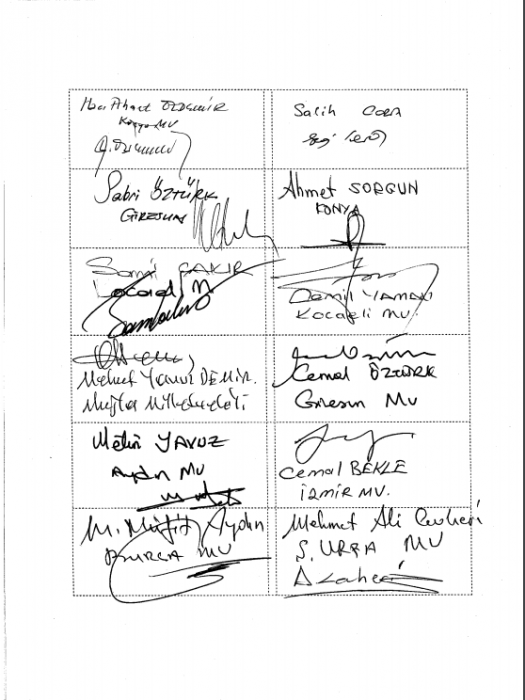 Ahmet ÖZDEMİR
Konya MV
Salih CORA
Sabri ÖZTÜRK
GİRESUN
Ahmet SORGUN
KONYA
Sami ÇAKIR
Kocaeli M
Cemil YAMAN
Kocaeli MV.
Mehmet Yavuz DEMİR.
Muğla Milletvekili
Cemal ÖZTÜRK
Giresun MV
Metin YAVUZ
Aydın MV
Cemal BEKLE
İzmir MV.
M. Müfit Aydın
BURSA MV
Mehmet Ali Cevheri
Ş. URFA MV